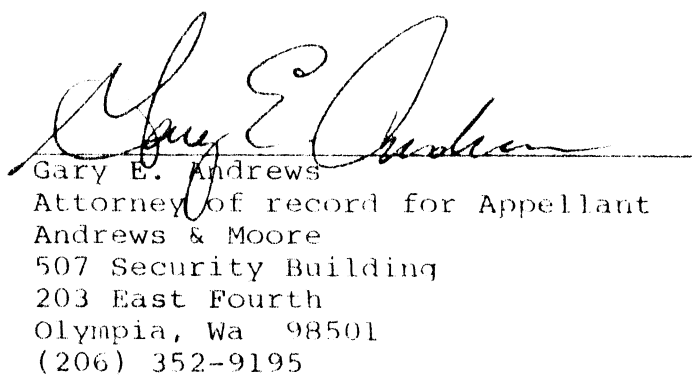 Gary E. Andrews
Gary E. Andrews
Attorney of record for Appellant
Andrews & Moore
507 Security Building
203 East Fourth
Olympia, Wa  98501
(206) 352-9195